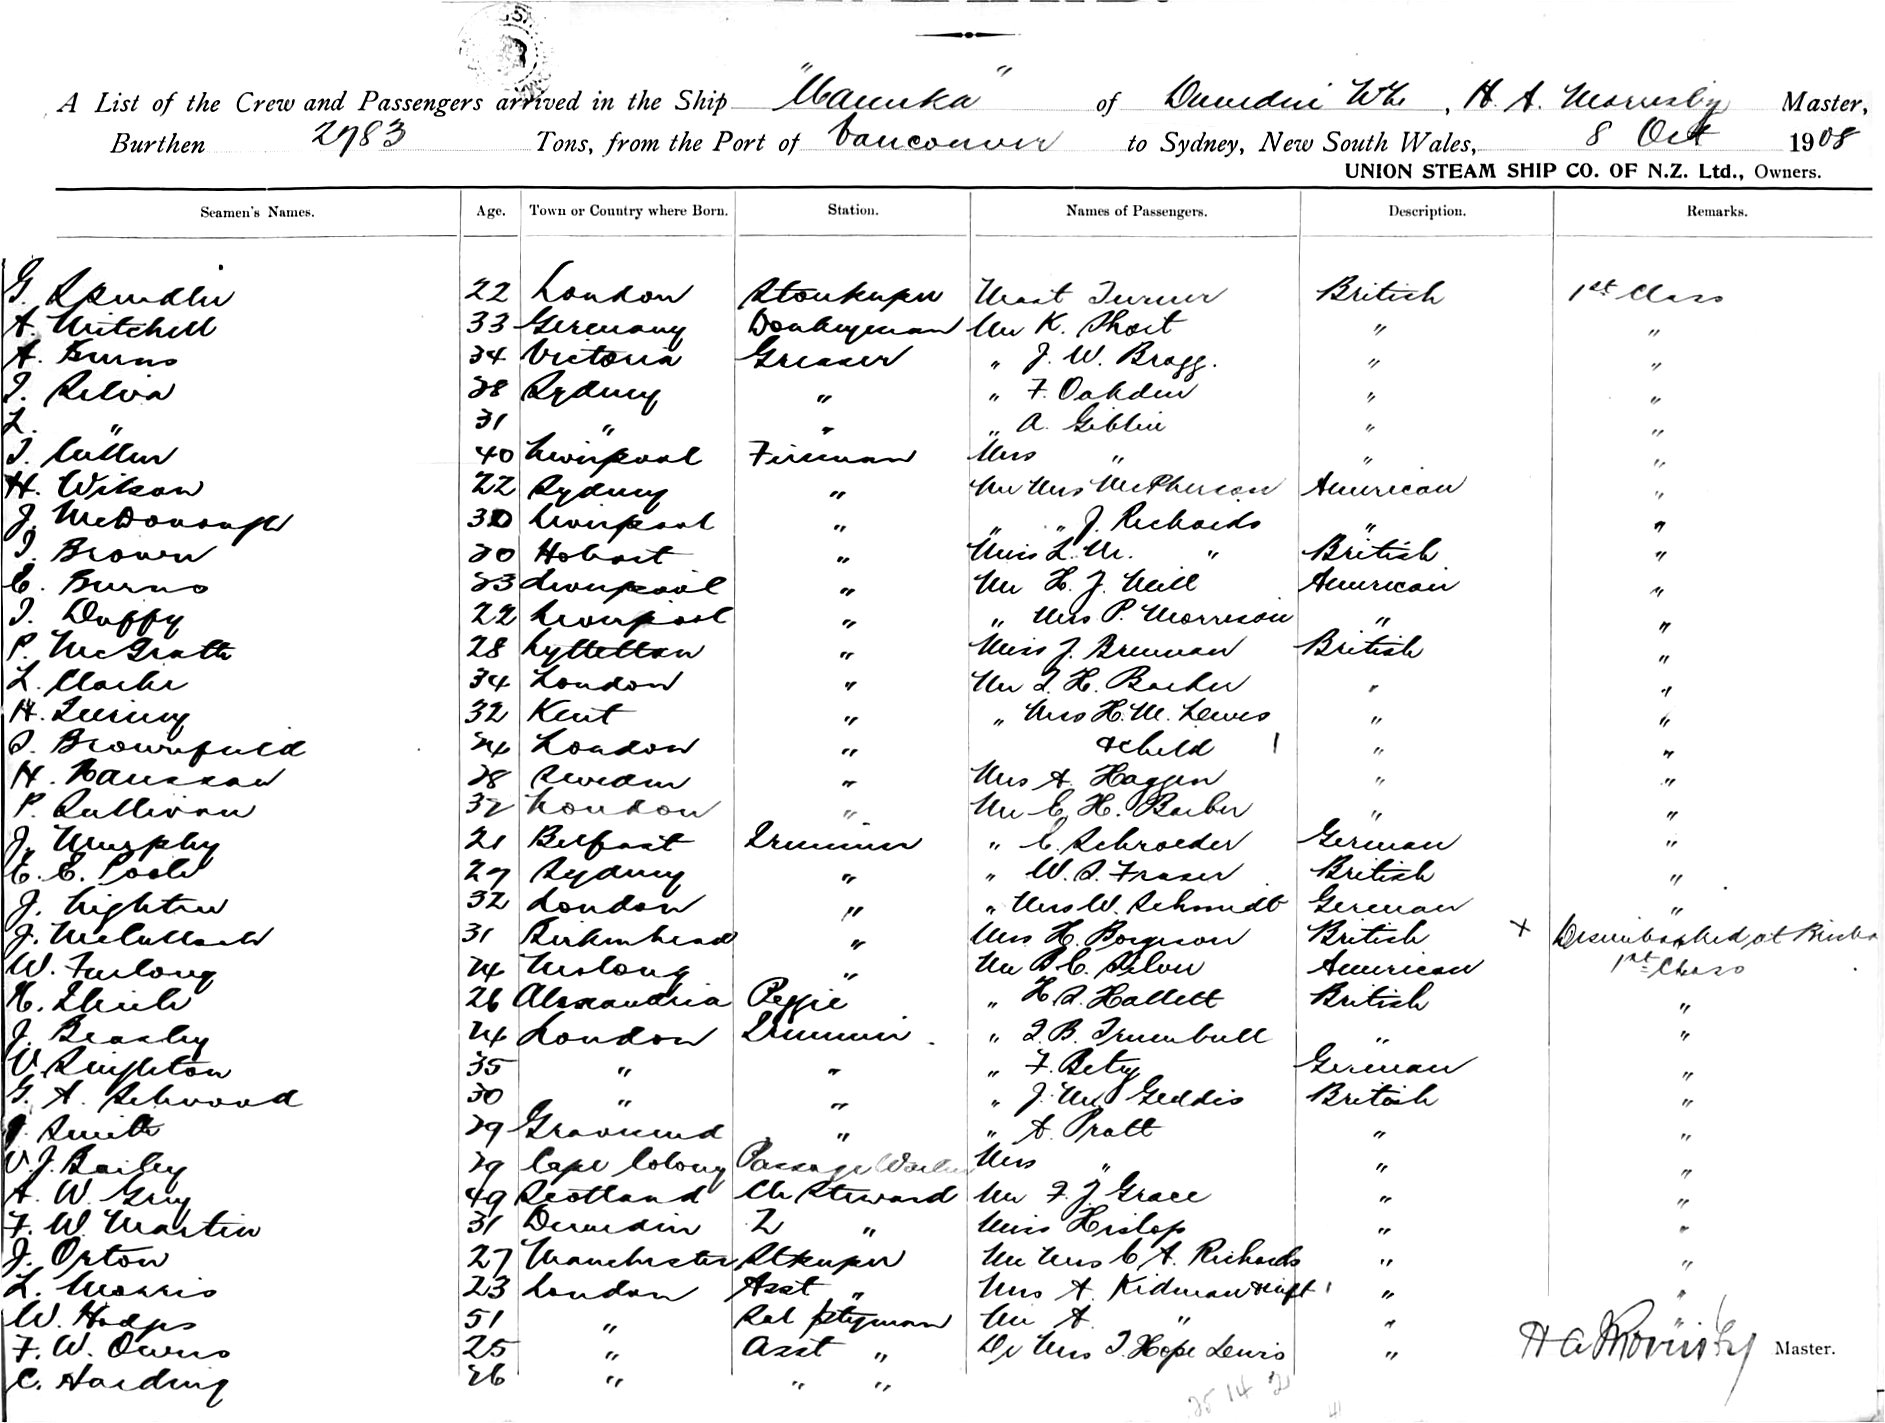 A List of the Crew and Passengers arrived in the Ship "Manuka" of Dunedin, H. A. Morrisby Master,
Burthen 2783 Tons, from the Port of Vancouver to Sydney, New South Wales, 8 Oct 1908
UNION STEAM SHIP CO. OF N.Z. Ltd., Owners.
Seamen's Names. Age. Town or Country where Born. Station. Names of Passengers. Description. Remarks.
G. Spindler 22 London Storekeeper Mast Turner British 1st Class
A. Mitchell 33 Germany Donkeyman Mr K. Short " "
A. Burns 34 Victoria Greaser " J. W. Bragg. " "
T. Silva 28 Sydney " " F. Oakden " "
L. " 31 " " " A. Giblin " "
T. Cullen 40 Liverpool Fireman Mrs " " "
H. Wilson 22 Sydney " Mr Mrs McPherson American "
J. McDonough 30 Liverpool " " " J. Richards " "
T. Brown 30 Hobart " Miss L. M. " British "
C. Burns 23 Liverpool " Mr H. J. Neill American "
T. Duffy 22 Liverpool " " Mrs P. Morrison " "
P. McGrath 28 Lyttelton " Miss J. Brennan British "
L. Clarke 34 London " Mr T. H. Barker " "
H. 32 Kent " " Mrs H. M. Lewis " "
S. Brownfield 24 London " & child 1 " "
H. Hansson 28 Sweden " Mrs A. Haggen " "
P. Sullivan 32 London " Mr C. H. Barber " "
J. Murphy 21 Belfast Trimmer " C. Schroeder German "
C. E. Poole 27 Sydney " " W. S. Fraser British "
J. Leighton 32 London " " Mrs W. Schmidt German "
J. McCulloch 31 Birkenhead " Mrs H. Borgeson British x Disembarked at Brisba
W. Furlong 24 " Mr B. C. Silver American 1st Class
H. 26 Alexandria Peggie " H. S. Hallett British "
J. Beasley 24 London Trimmer " T. B. Trumbull " "
V. Singleton 35 " " " F. Bety German "
G. A. Selwood 30 " " " J. Mc Geddis British "
J. Smith 29 Gravesend " " A. Pratt " "
V. J. Bailey 29 Cape Colony Passage Worker Mrs " " "
A. W. Guy 49 Scotland Ch Steward Mr F. J. Grace " "
F. W. Martin 31 Dunedin 2 " Miss Hislop " "
J. Orton 27 Manchester Stkeeper Mr Mrs C. A. Richards " "
L. Morris 23 London Asst " Mrs A. Kidman & inft 1 " "
W. Hodges 51 " Sal Ptryman Mr A. " "
F. W. Owens 25 " Asst " Dr Mrs T. Hope Lewis " H A Morrisby Master.
C. Harding 26 " " "
25 14 2